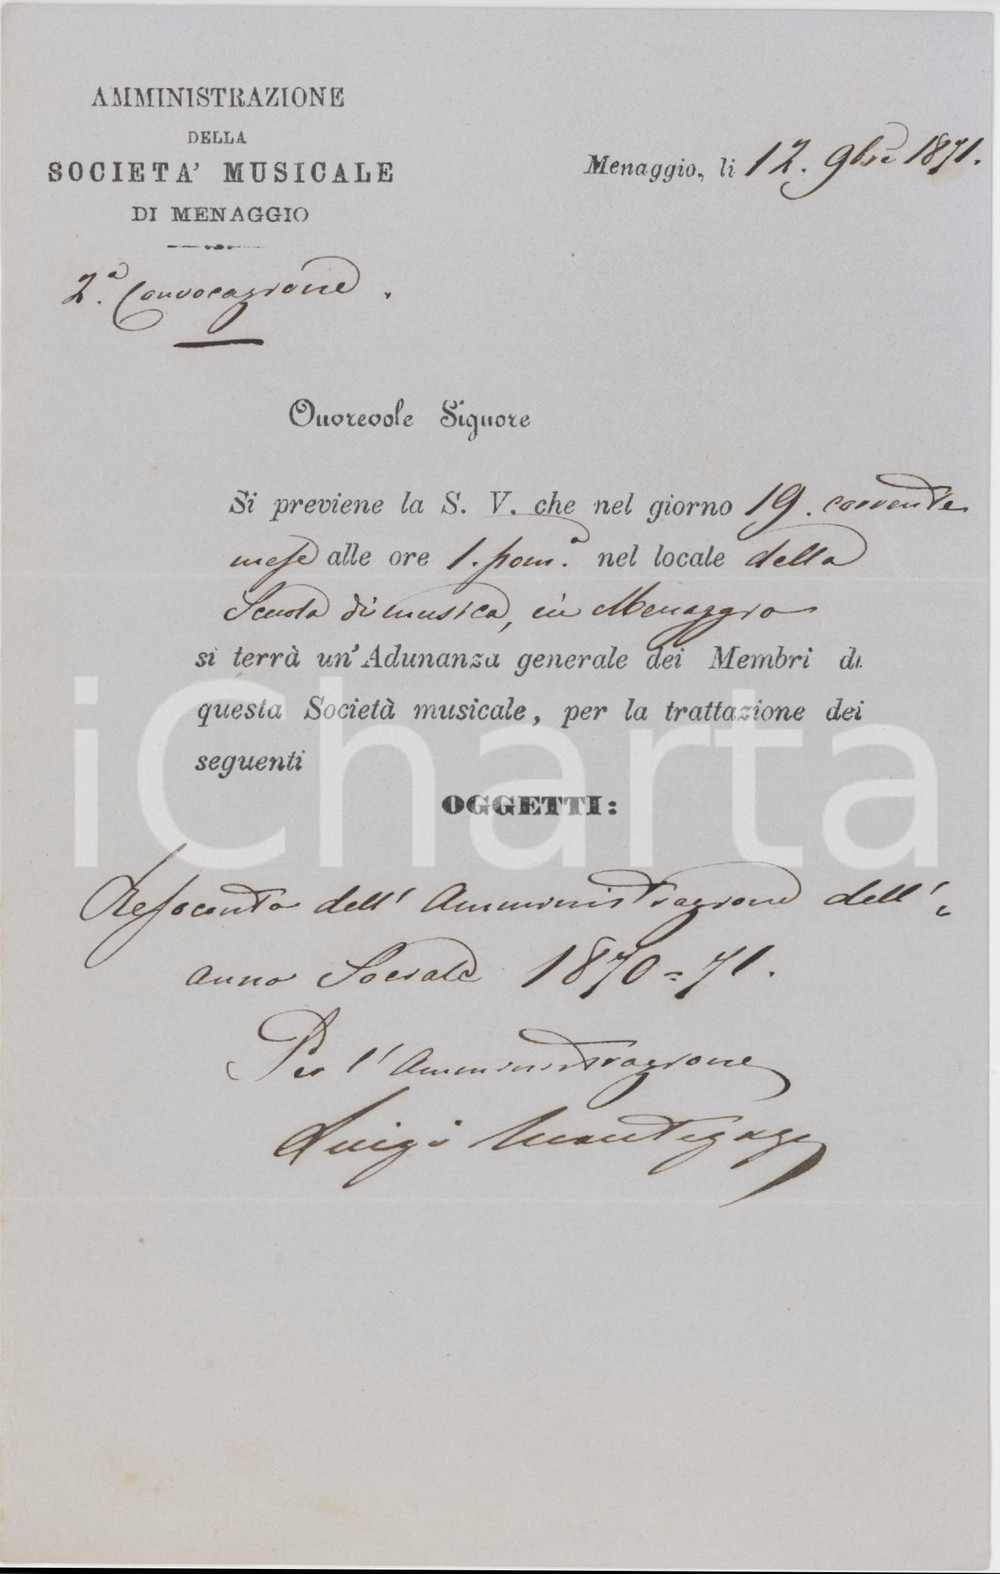 AMMINISTRAZIONE
DELLA
SOCIETA' MUSICALE
DI MENAGGIO
Menaggio, li 12. 9bre 1871.
2.a Convocazione.
Onorevole Signore
Si previene la S. V. che nel giorno 19. corrente
mese alle ore 1. pom.a nel locale della
Scuola di musica, in Menaggio
si terrà un' Adunanza generale dei Membri di
questa Società musicale, per la trattazione dei
seguenti
OGGETTI:
Resoconto dell' Amministrazione dell'
anno Sociale 1870=71.
Per l'Amministrazione
Luigi Mantegazza
iCharta